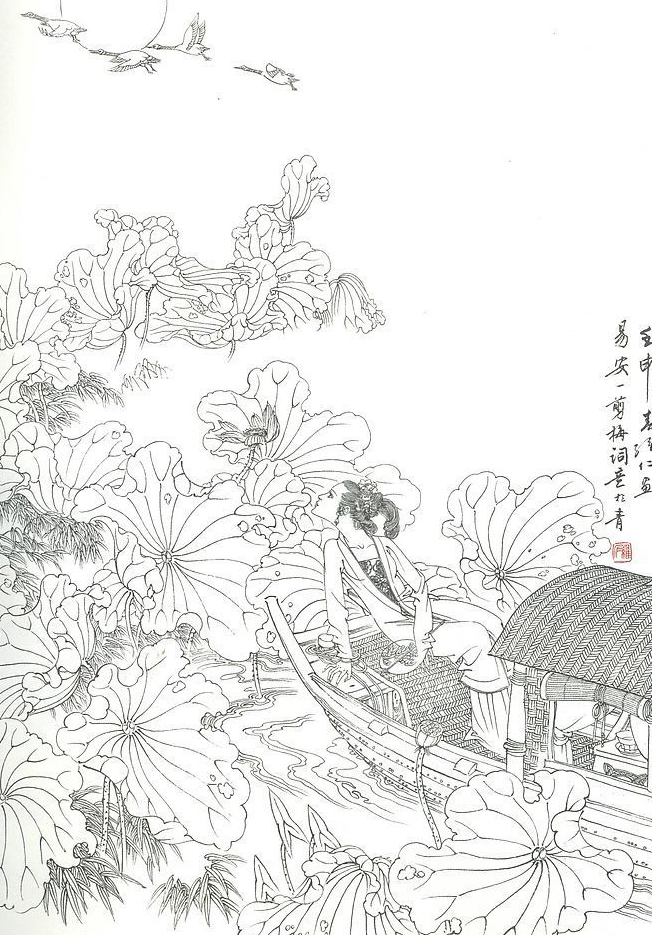 壬申春仁画
易安一剪梅词意於青